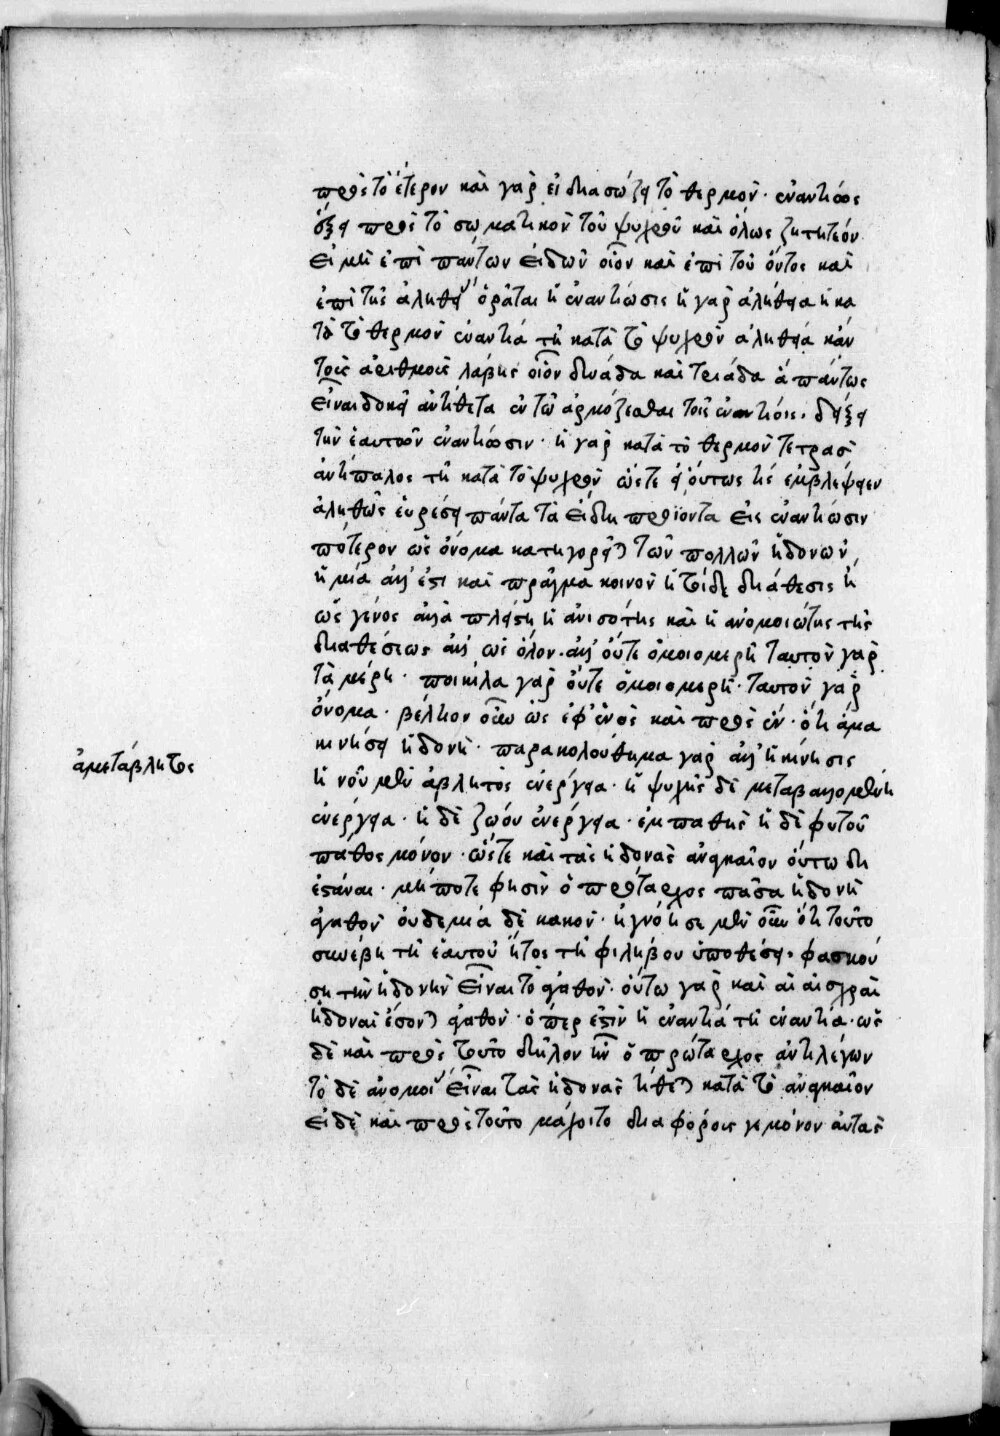 πρὸς τὸ ἕτερον καὶ γὰρ εἰ διασώζει τὸ θερμὸν· ἐναντίως
ἕξει πρὸς τὸ σωματικὸν τοῦ ψυχροῦ καὶ ὅλως ζητητέον
εἰ μὴ ἐπὶ πάντων εἰδῶν οἷον καὶ ἐπὶ τοῦ ὄντος καὶ
ἐπὶ τῆς ἀληθεί ὁρᾶται ἡ ἐναντίωσις ἡ γὰρ ἀλήθεια ἡ κα
τὰ τὸ θερμὸν ἐναντία τῇ κατὰ τὸ ψυχρὸν ἀληθεία κἂν
τοῖς ἀριθμοῖς λάβῃς οἷον δυάδα καὶ τριάδα ἃ πάντως
εἶναι δοκεῖ ἀντίθετα ἐν τῷ ἁρμόζεσθαι τοῖς ἐναντίοις· δείξει
τὴν ἑαυτῶν ἐναντίωσιν· ἡ γὰρ κατὰ τὸ θερμὸν τετρὰς
ἀντίπαλος τῇ κατὰ τὸ ψυχρὸν ὥστε εἰ οὕτως τίς ἐμβλέψειεν
ἀληθῶς εὑρήσει πάντα τὰ εἴδη προϊόντα εἰς ἐναντίωσιν
πότερον ὡς ὄνομα κατηγορεῖται τῶν πολλῶν ἡδονῶν,
ἢ μία ἐστι καὶ πρᾶγμα κοινὸν ἡ τοιάδε διάθεσις ἢ
ὡς γένος ἀλλὰ πλείστη ἡ ἀνισότης καὶ ἡ ἀνομοιώτης τῆς
διαθέσεως ἀλλ' ὡς ὅλον· ἀλλ' οὔτε ὁμοιομερῆ ταυτὸν γὰρ
τὰ μέρη· ποικίλα γὰρ οὔτε ὁμοιομερῆ· ταυτὸν γὰρ
ὄνομα· βέλτιον οὖν ὡς ἀφ' ἑνὸς καὶ πρὸς ἓν· ὅτι ἅμα
κινήσει ἡδονὴ· παρακολούθημα γὰρ ἀλλ' ἡ κίνησις
ἀμετάβλητος
ἡ νοῦ μὲν ἄβλητος ἐνέργεια· ἡ ψυχῆς δὲ μεταβαλλομένη
ἐνέργεια· ἡ δὲ ζώου ἐνέργεια· ἐμπαθὴς ἡ δὲ φυτοῦ
πάθος μόνον· ὥστε καὶ τὰς ἡδονὰς ἀναγκαῖον οὕτω δι
εστάναι· μήποτε φησὶν ὁ πρώταρχος πᾶσα ἡδονὴ
ἀγαθὸν οὐδεμία δὲ κακὸν· ἠγνόησε μὲν οὖν ὅτι τοῦτο
συνέβη τῇ ἑαυτοῦ ἤτοι τῇ φιλήβου ὑποθέσει· φασκού
ση τὴν ἡδονὴν εἶναι τὸ ἀγαθὸν· οὕτω γὰρ καὶ αἱ αἰσχραὶ
ἡδοναὶ ἔσονται ἀγαθὸν· ὅπερ ἐστὶν ἡ ἐναντία τῇ ἐναντία· ὡς
δὲ καὶ πρὸς τοῦτο δῆλον ἦν ὁ πρώταρχος ἀντιλέγων
τὸ δὲ ἀνομοί εἶναι τὰς ἡδονὰς τίθεται κατὰ τὸ ἀναγκαῖον
εἰ δὲ καὶ πρὸς τοῦτο μάχοιτο διαφόροις γε μόνον αὐτὰς